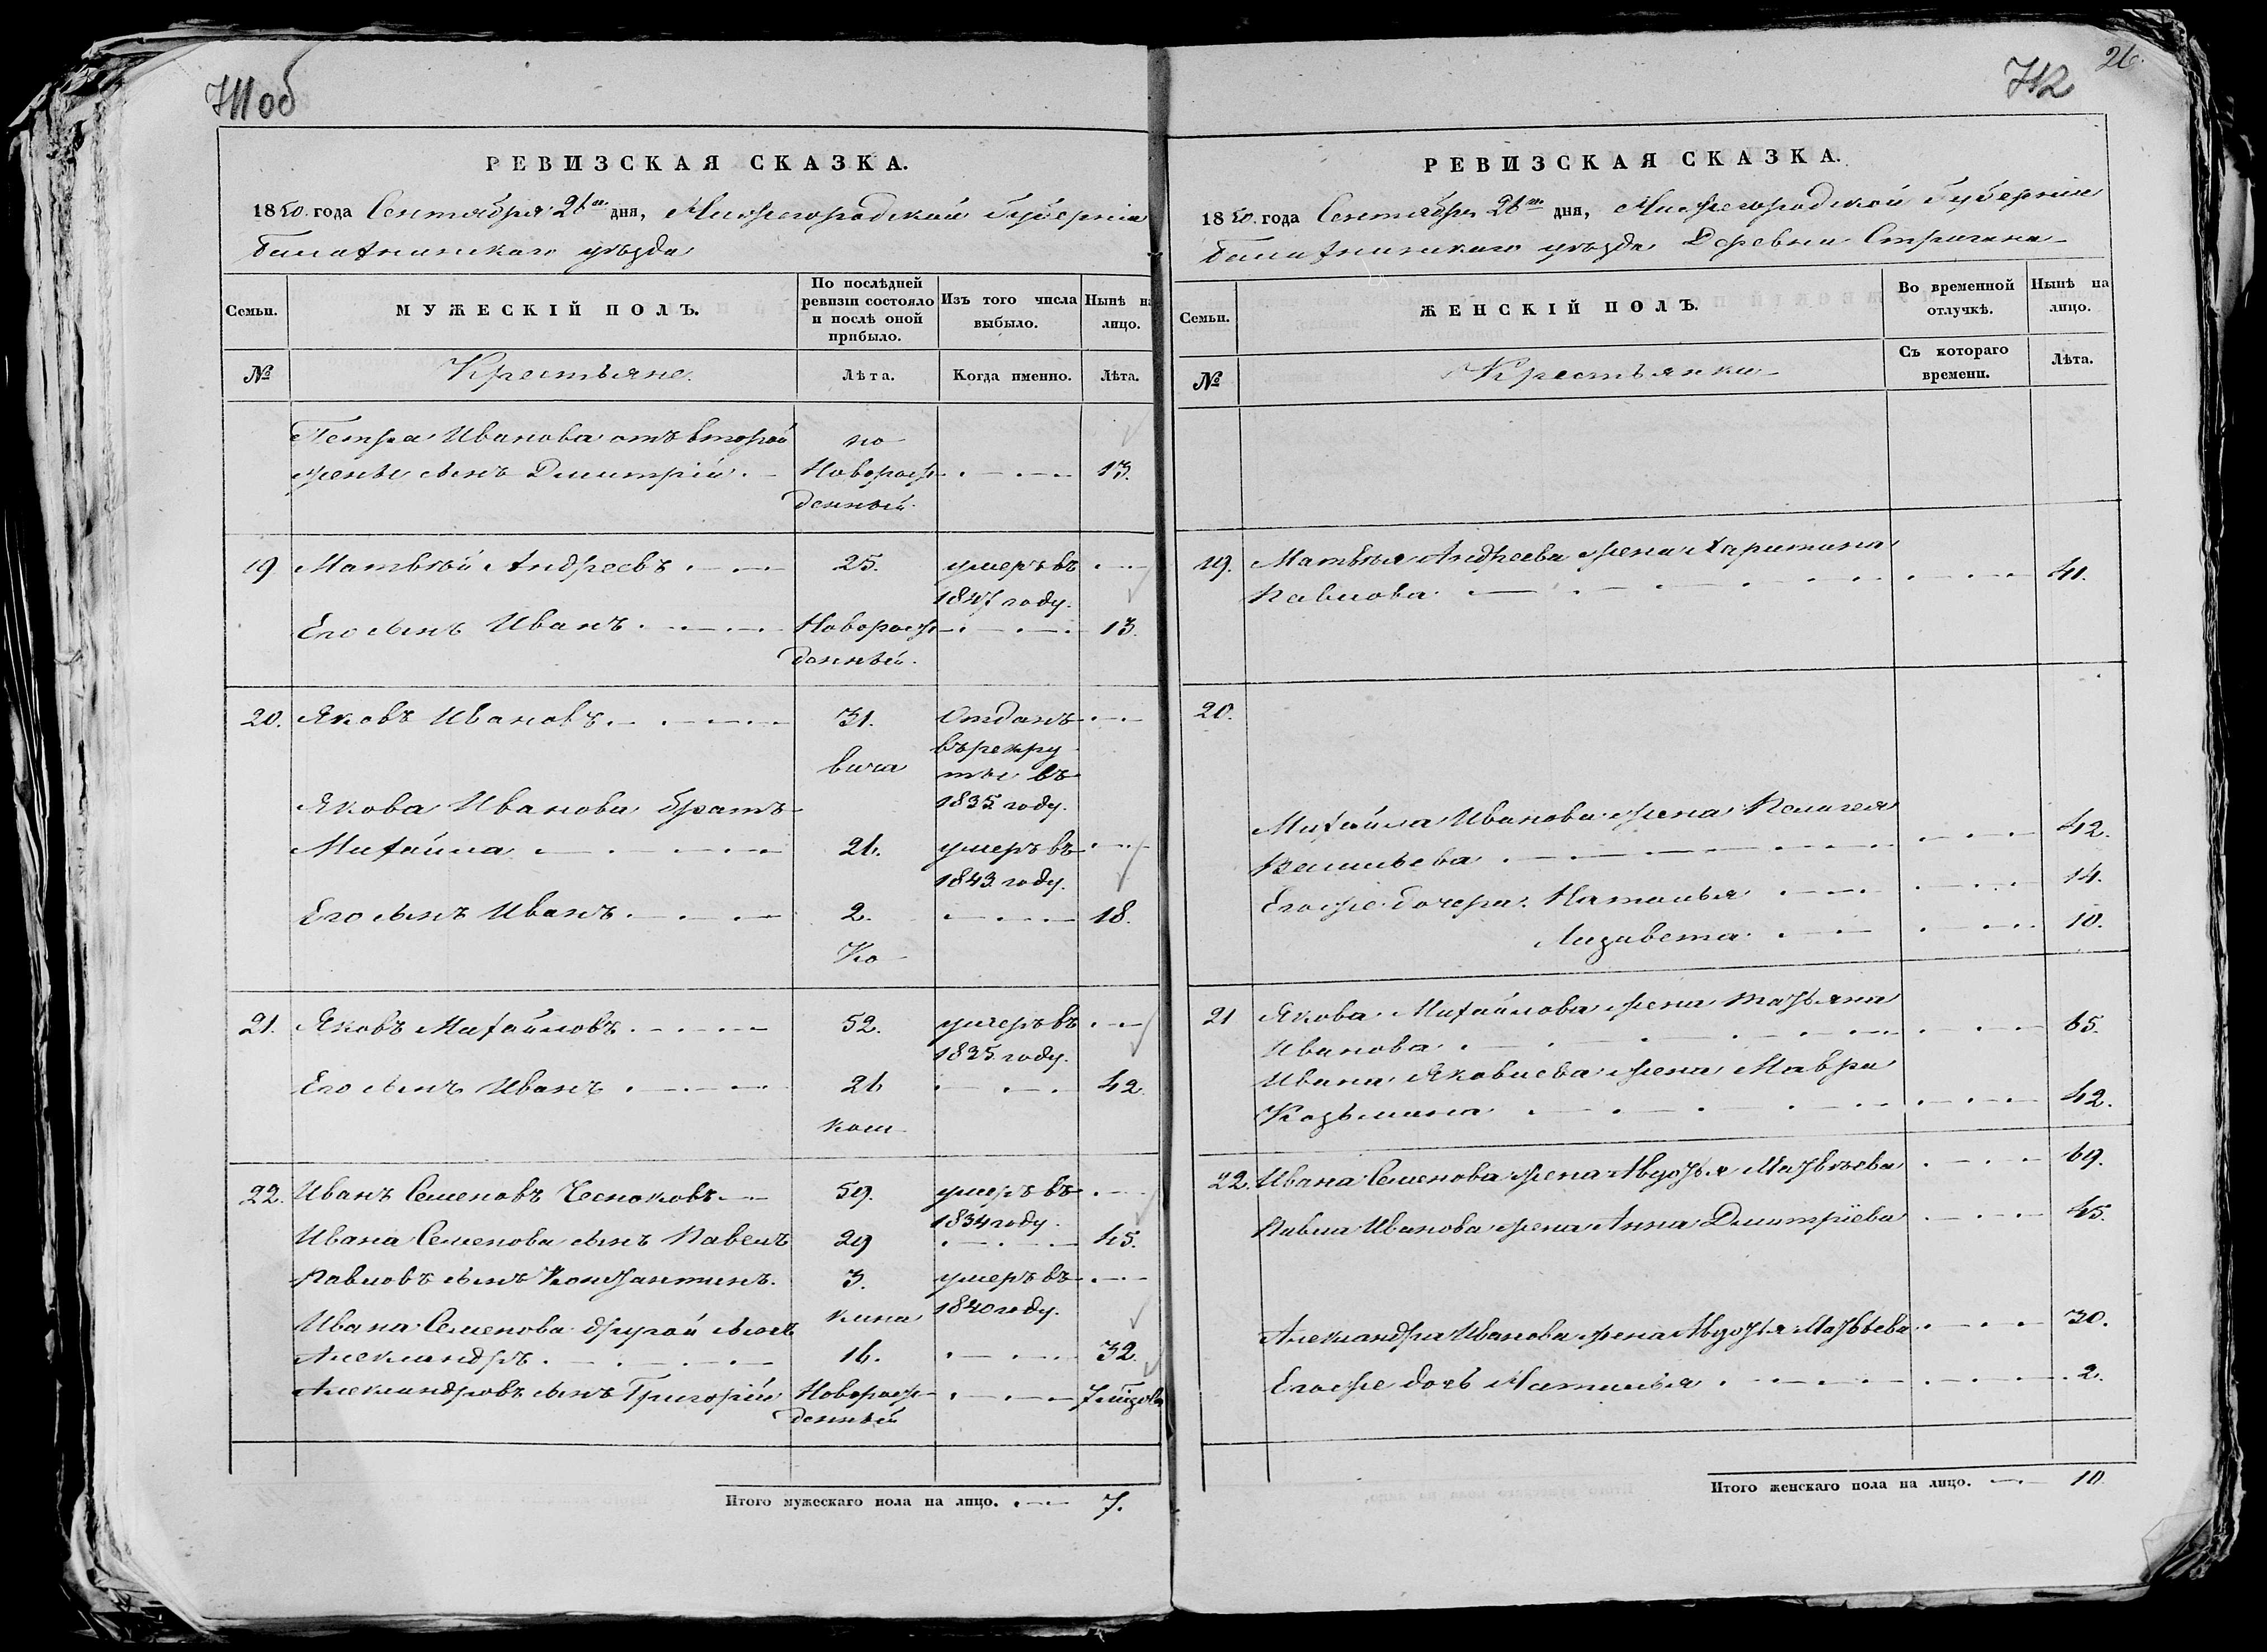 711 об
РЕВИЗСКАЯ СКАЗКА.
1850. года Сентября 26го дня, Нижегородской Губерніи
Балахнинскаго уѣзда
Семьи.
МУЖЕСКІЙ ПОЛЪ.
По послѣдней ревизіи состояло и послѣ оной прибыло.
Изъ того числа выбыло.
Нынѣ на лицо.
№
Крестьяне.
Лѣта.
Когда именно.
Лѣта.
Петра Иванова отъ второй по
жены сынъ Дмитрій. Новорож 13.
денный.
19 Матвѣй Андреевъ 25. умеръ въ
1847 году.
Его сынъ Иванъ Новорож 13.
денный.
20. Яковъ Ивановъ 31. Отданъ
въ рекру
ты въ
1835 году.
Якова Иванова братъ
Михайла 26. умеръ въ
1843 году.
Его сынъ Иванъ 2. 18.
Ко
21. Яковъ Михайловъ 52. умеръ въ
1835 году.
Его сынъ Иванъ 26 42.
22. Иванъ Семеновъ Чесноковъ 59. умеръ въ
1834 году.
Ивана Семенова сынъ Павелъ 29 45.
Павловъ сынъ Константинъ. 3. умеръ въ
1840 году.
Ивана Семенова другой сынъ
Александръ 16. 32.
Александровъ сынъ Григорій Новорож
денный
Итого мужескаго пола на лицо. 7.
712
26.
РЕВИЗСКАЯ СКАЗКА.
1850. года Сентября 26го дня, Нижегородской Губерніи
Балахнинскаго уѣзда Деревни Стригина
Семьи.
ЖЕНСКІЙ ПОЛЪ.
Во временной отлучкѣ.
Нынѣ на лицо.
№
Крестьянки
Съ котораго времени.
Лѣта.
19. Матвѣя Андреева жена Харитина
Павлова 41.
20.
Михайла Иванова жена Пелагея
Васильева 42.
Его же дочери: Наталья 14.
Лизавета 10.
21 Якова Михайлова жена Татьяна
Иванова 65.
Ивана Яковлева жена Мавра
Козьмина 42.
22. Ивана Семенова жена Авдотья Матвѣева 69.
Павла Иванова жена Анна Дмитріева 45.
Александра Иванова жена Авдотья Матвѣева 30.
Его же дочь Наталья 2.
Итого женскаго пола на лицо. 10.